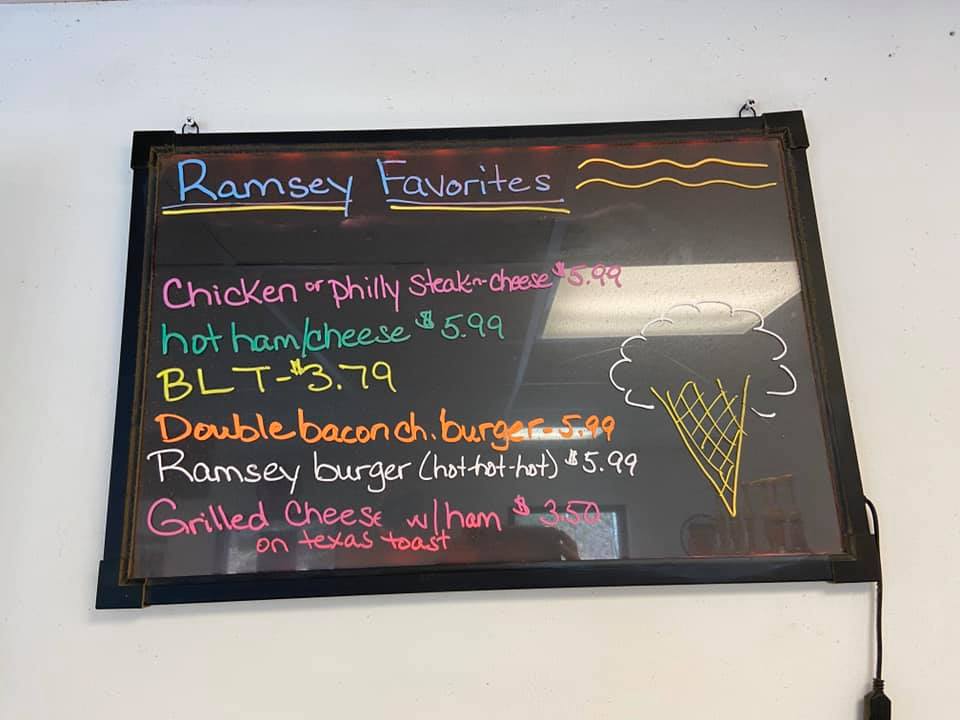 Ramsey Favorites
Chicken or philly Steak-n-cheese $5.99
hot ham/cheese $5.99
BLT-$3.79
Double bacon ch. burger-5.99
Ramsey burger (hot-hot-hot) $5.99
Grilled Cheese w/ham $3.50
on texas toast